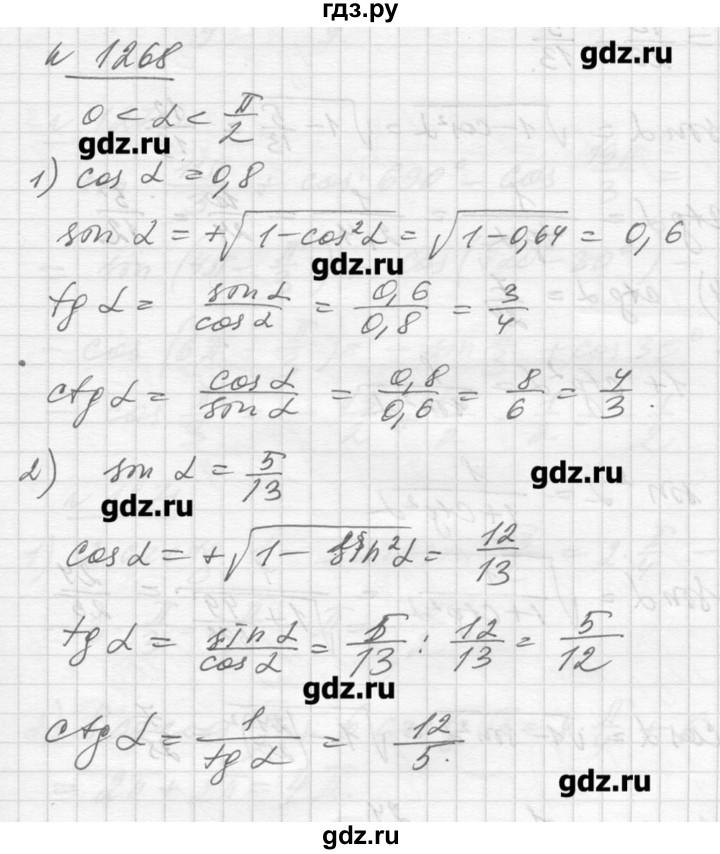 гдз.ру
N 1268
gdz.ru
0 < α < π/2
gdz.ru
1) cos α = 0,8
sin α = +√(1-cos²α) = √(1-0,64) = 0,6
gdz.ru
tg α = sin α/cos α = 0,6/0,8 = 3/4
ctg α = cos α/sin α = 0,8/0,6 = 8/6 = 4/3.
2) sin α = 5/13
gdz.ru
gdz.ru
cos α = +√(1 - sin²α) = 12/13
tg α = sin α/cos α = 5/13 : 12/13 = 5/12
gdz.ru
ctg α = 1/tg α = 12/5.
gdz.ru
gdz.ru